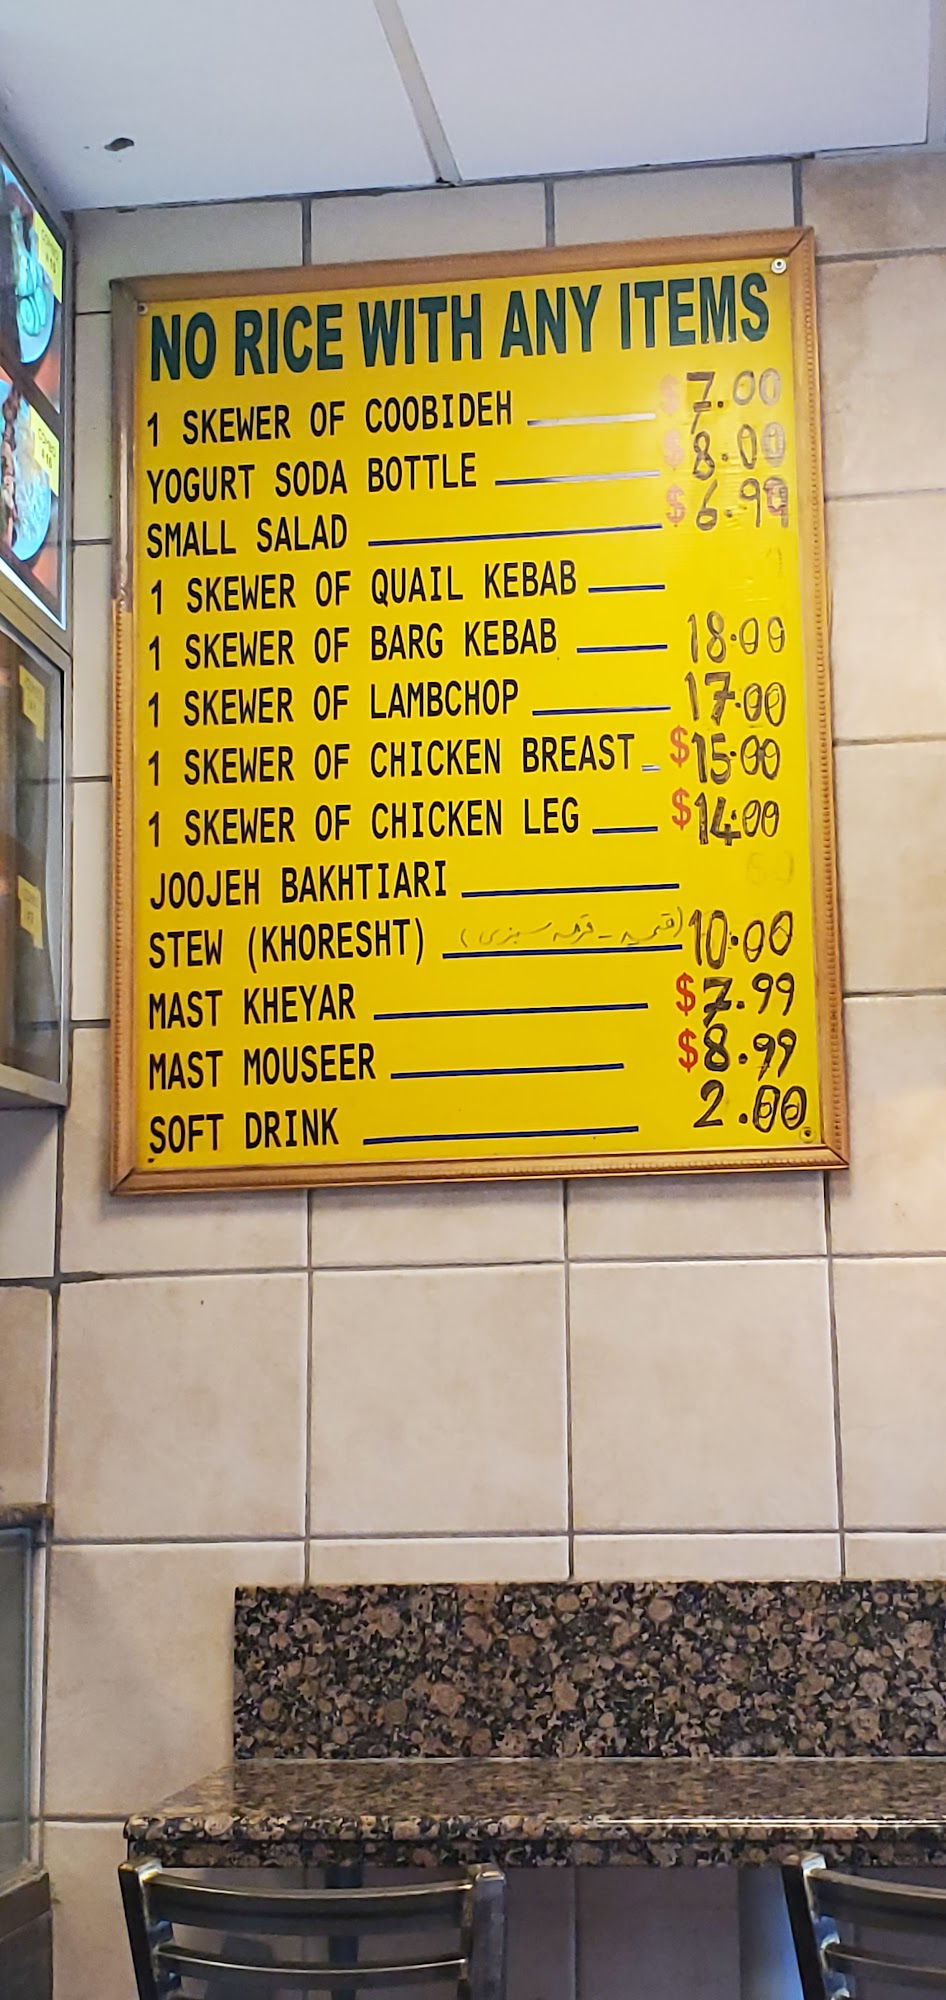 NO RICE WITH ANY ITEMS
1 SKEWER OF COOBIDEH $7.00
YOGURT SODA BOTTLE $8.00
SMALL SALAD $6.99
1 SKEWER OF QUAIL KEBAB
1 SKEWER OF BARG KEBAB 18.00
1 SKEWER OF LAMBCHOP 17.00
1 SKEWER OF CHICKEN BREAST $15.00
1 SKEWER OF CHICKEN LEG $14.00
JOOJEH BAKHTIARI
STEW (KHORESHT) (قیمه - قرمه سبزی) 10.00
MAST KHEYAR $7.99
MAST MOUSEER $8.99
SOFT DRINK 2.00